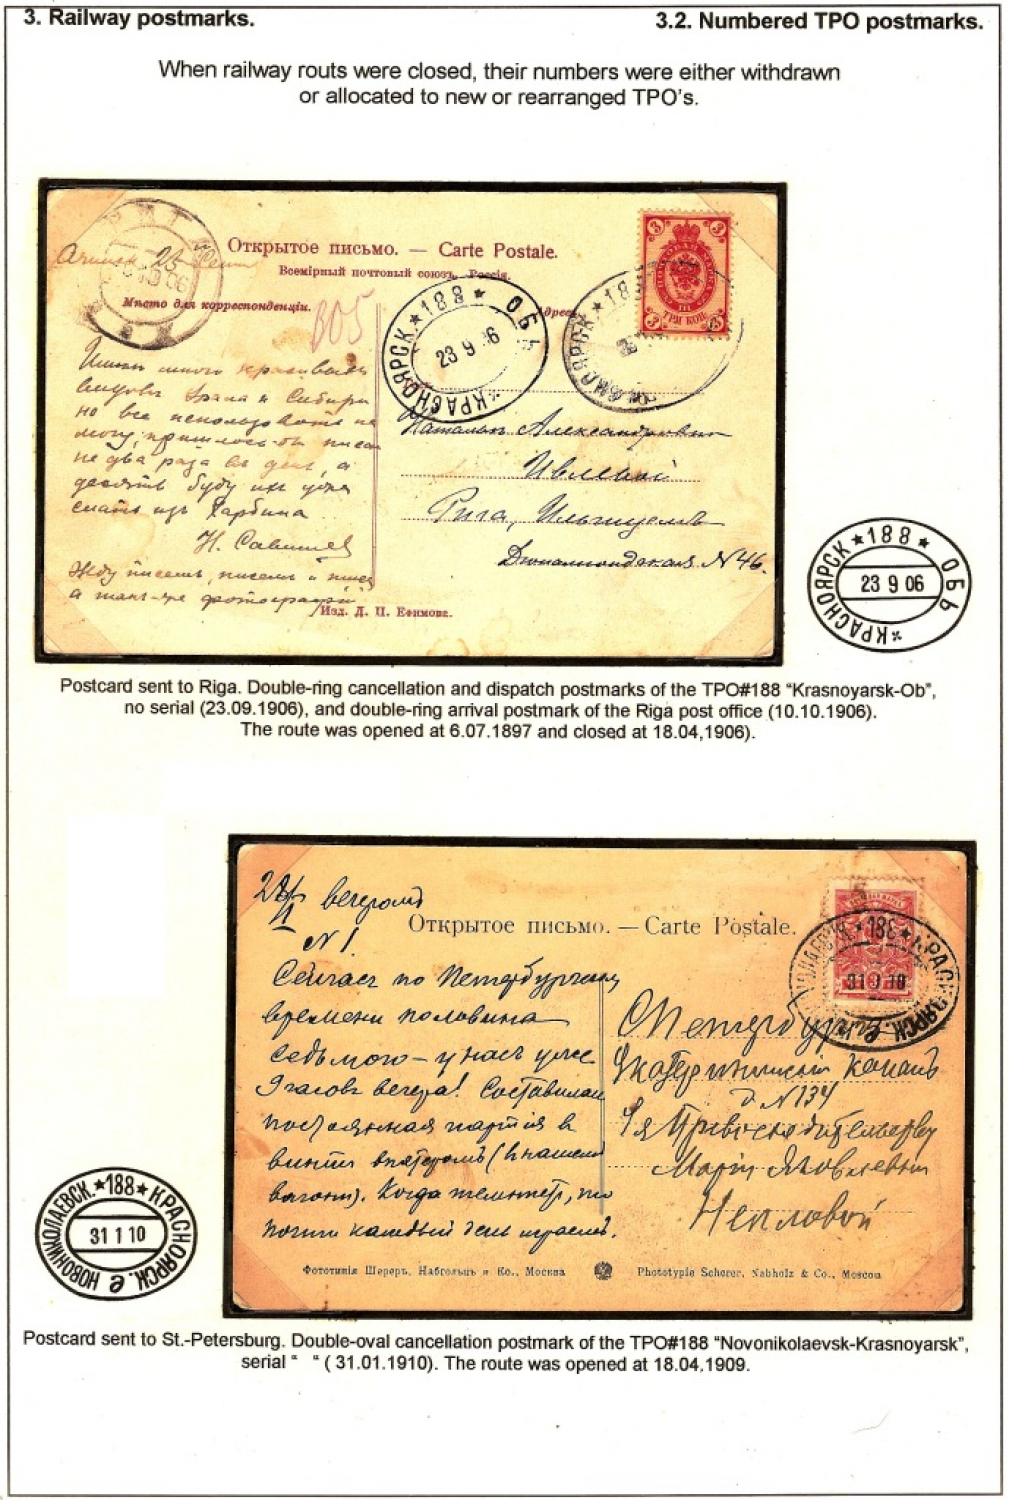 3. Railway postmarks.
3.2. Numbered TPO postmarks.
When railway routs were closed, their numbers were either withdrawn
or allocated to new or rearranged TPO's.
Открытое письмо. — Carte Postale.
Всемірный почтовый союзъ. Россія.
Мѣсто для корреспонденціи.
Адресъ
КРАСНОЯРСК. *188* ОБЬ
23 9 06
3 3
ТРИ КОП
3 3
много
Урала и Сибири
но все использовать не
могу, пришлось-бы писать
не два раза въ день, а
десять буду ихъ
слать изъ Харбина
Н.
Жду писемъ, писемъ и писемъ
а также фотографій
Ивлевой
Рига, Ильгецемъ
Дюнамюндская N 46.
Изд. Д. П. Ефимова.
*КРАСНОЯРСК*188* ОБЬ
23 9 06
Postcard sent to Riga. Double-ring cancellation and dispatch postmarks of the TPO#188 “Krasnoyarsk-Ob”,
no serial (23.09.1906), and double-ring arrival postmark of the Riga post office (10.10.1906).
The route was opened at 6.07.1897 and closed at 18.04,1906).
вечеромъ
N 1.
Открытое письмо. — Carte Postale.
188 * КРАСНОЯРСК. е
31 1 10
Сейчасъ по Петербургскому
времени половина
седьмого – у насъ уже
9 часовъ вечера! Составилась
постоянная партія въ
винтъ (въ нашемъ
вагонѣ). Когда
почти каждый день играемъ.
С Петербургъ
Екатерининскій каналъ
д. N 134
Ея Превосходительству
Маріи Яковлевнѣ
Неплюевой
Фототипія Шереръ, Набгольцъ и Ко., Москва
Phototypie Scherer, Nabholz & Co., Moscou
НОВОНИКОЛАЕВСК. *188* КРАСНОЯРСК. е
31 1 10
Postcard sent to St.-Petersburg. Double-oval cancellation postmark of the TPO#188 “Novonikolaevsk-Krasnoyarsk”,
serial “ “ ( 31.01.1910). The route was opened at 18.04.1909.